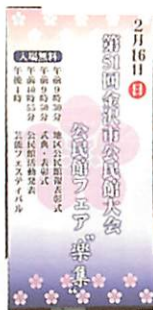 2月16日 日
第51回金沢市公民館大会
公民館フェア"楽集"
入場無料
午前9時30分 地区公民館報表彰式
午前9時50分 式典・表彰式
午前10時55分 公民館活動発表
午後1時 芸能フェスティバル